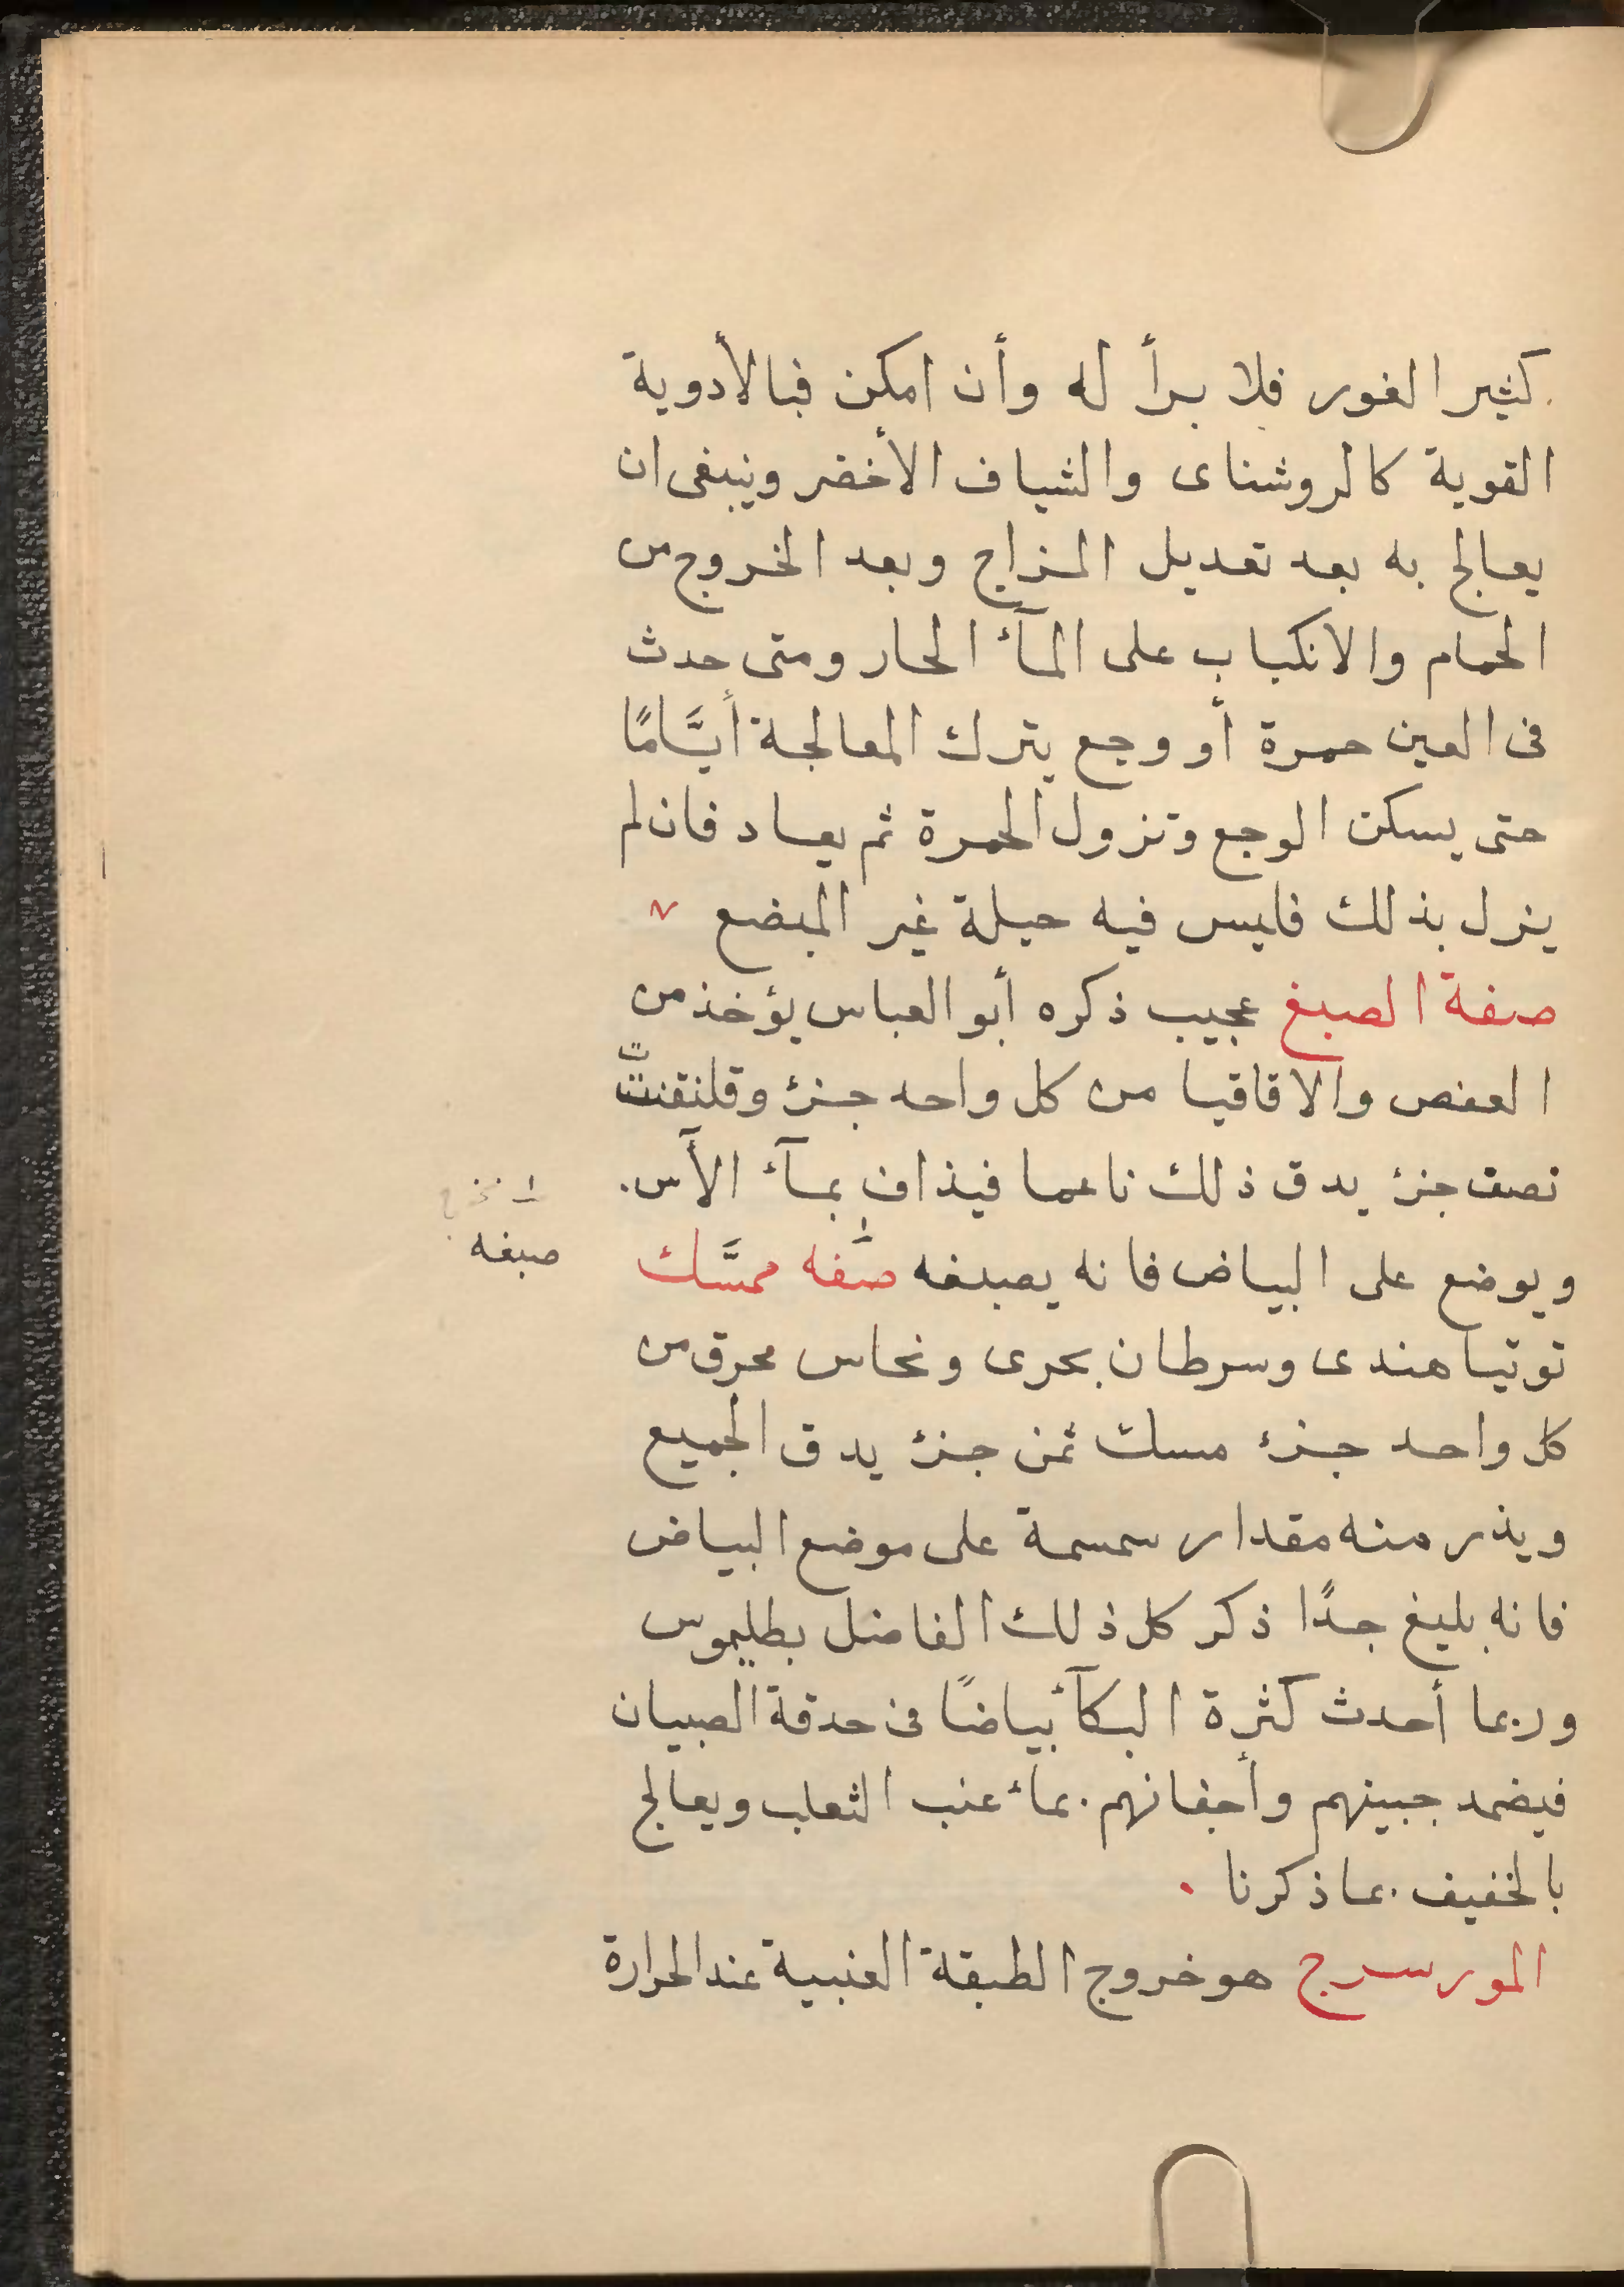 كثير الغور فلا برأ له وأن امكن فبالأدوية
القوية كالروشناى والشياف الأخضر وينبغى ان
يعالج به بعد تعديل المزاج وبعد الخروج من
الحمام والانكباب على المآء الحار ومتى حدث
فى العين حمرة أو وجع يترك المعالجة أيَّامًا
حتى يسكن الوجع وتزول الحمرة ثم يعاد فان لم
يزل بذلك فليس فيه حيلة غير المبضع
صفة الصبغ عجيب ذكره أبو العباس يؤخذ من
العفص والاقاقيا من كل واحد جزء وقلنقنت
نصف جزء يدق ذلك ناعما فيذاف بمآء الآس.
ويوضع على البياض فانه يصبغه صفه ممسَّك
صبغه
توتيا هندى وسرطان بحرى ونحاس محرق من
كل واحد جزء مسك ثمن جزء يدق الجميع
ويذر منه مقدار سمسمة على موضع البياض
فانه بليغ جدًا ذكر كل ذلك الفاضل بطليموس
وربما أحدث كثرة البكآء بياضًا فى حدقة الصبيان
فيضمد جبينهم وأجفانهم بماء عنب الثعلب ويعالج
بالخفيف بما ذكرنا .
المورسرج هو خروج الطبقة العنبية عند الحرارة